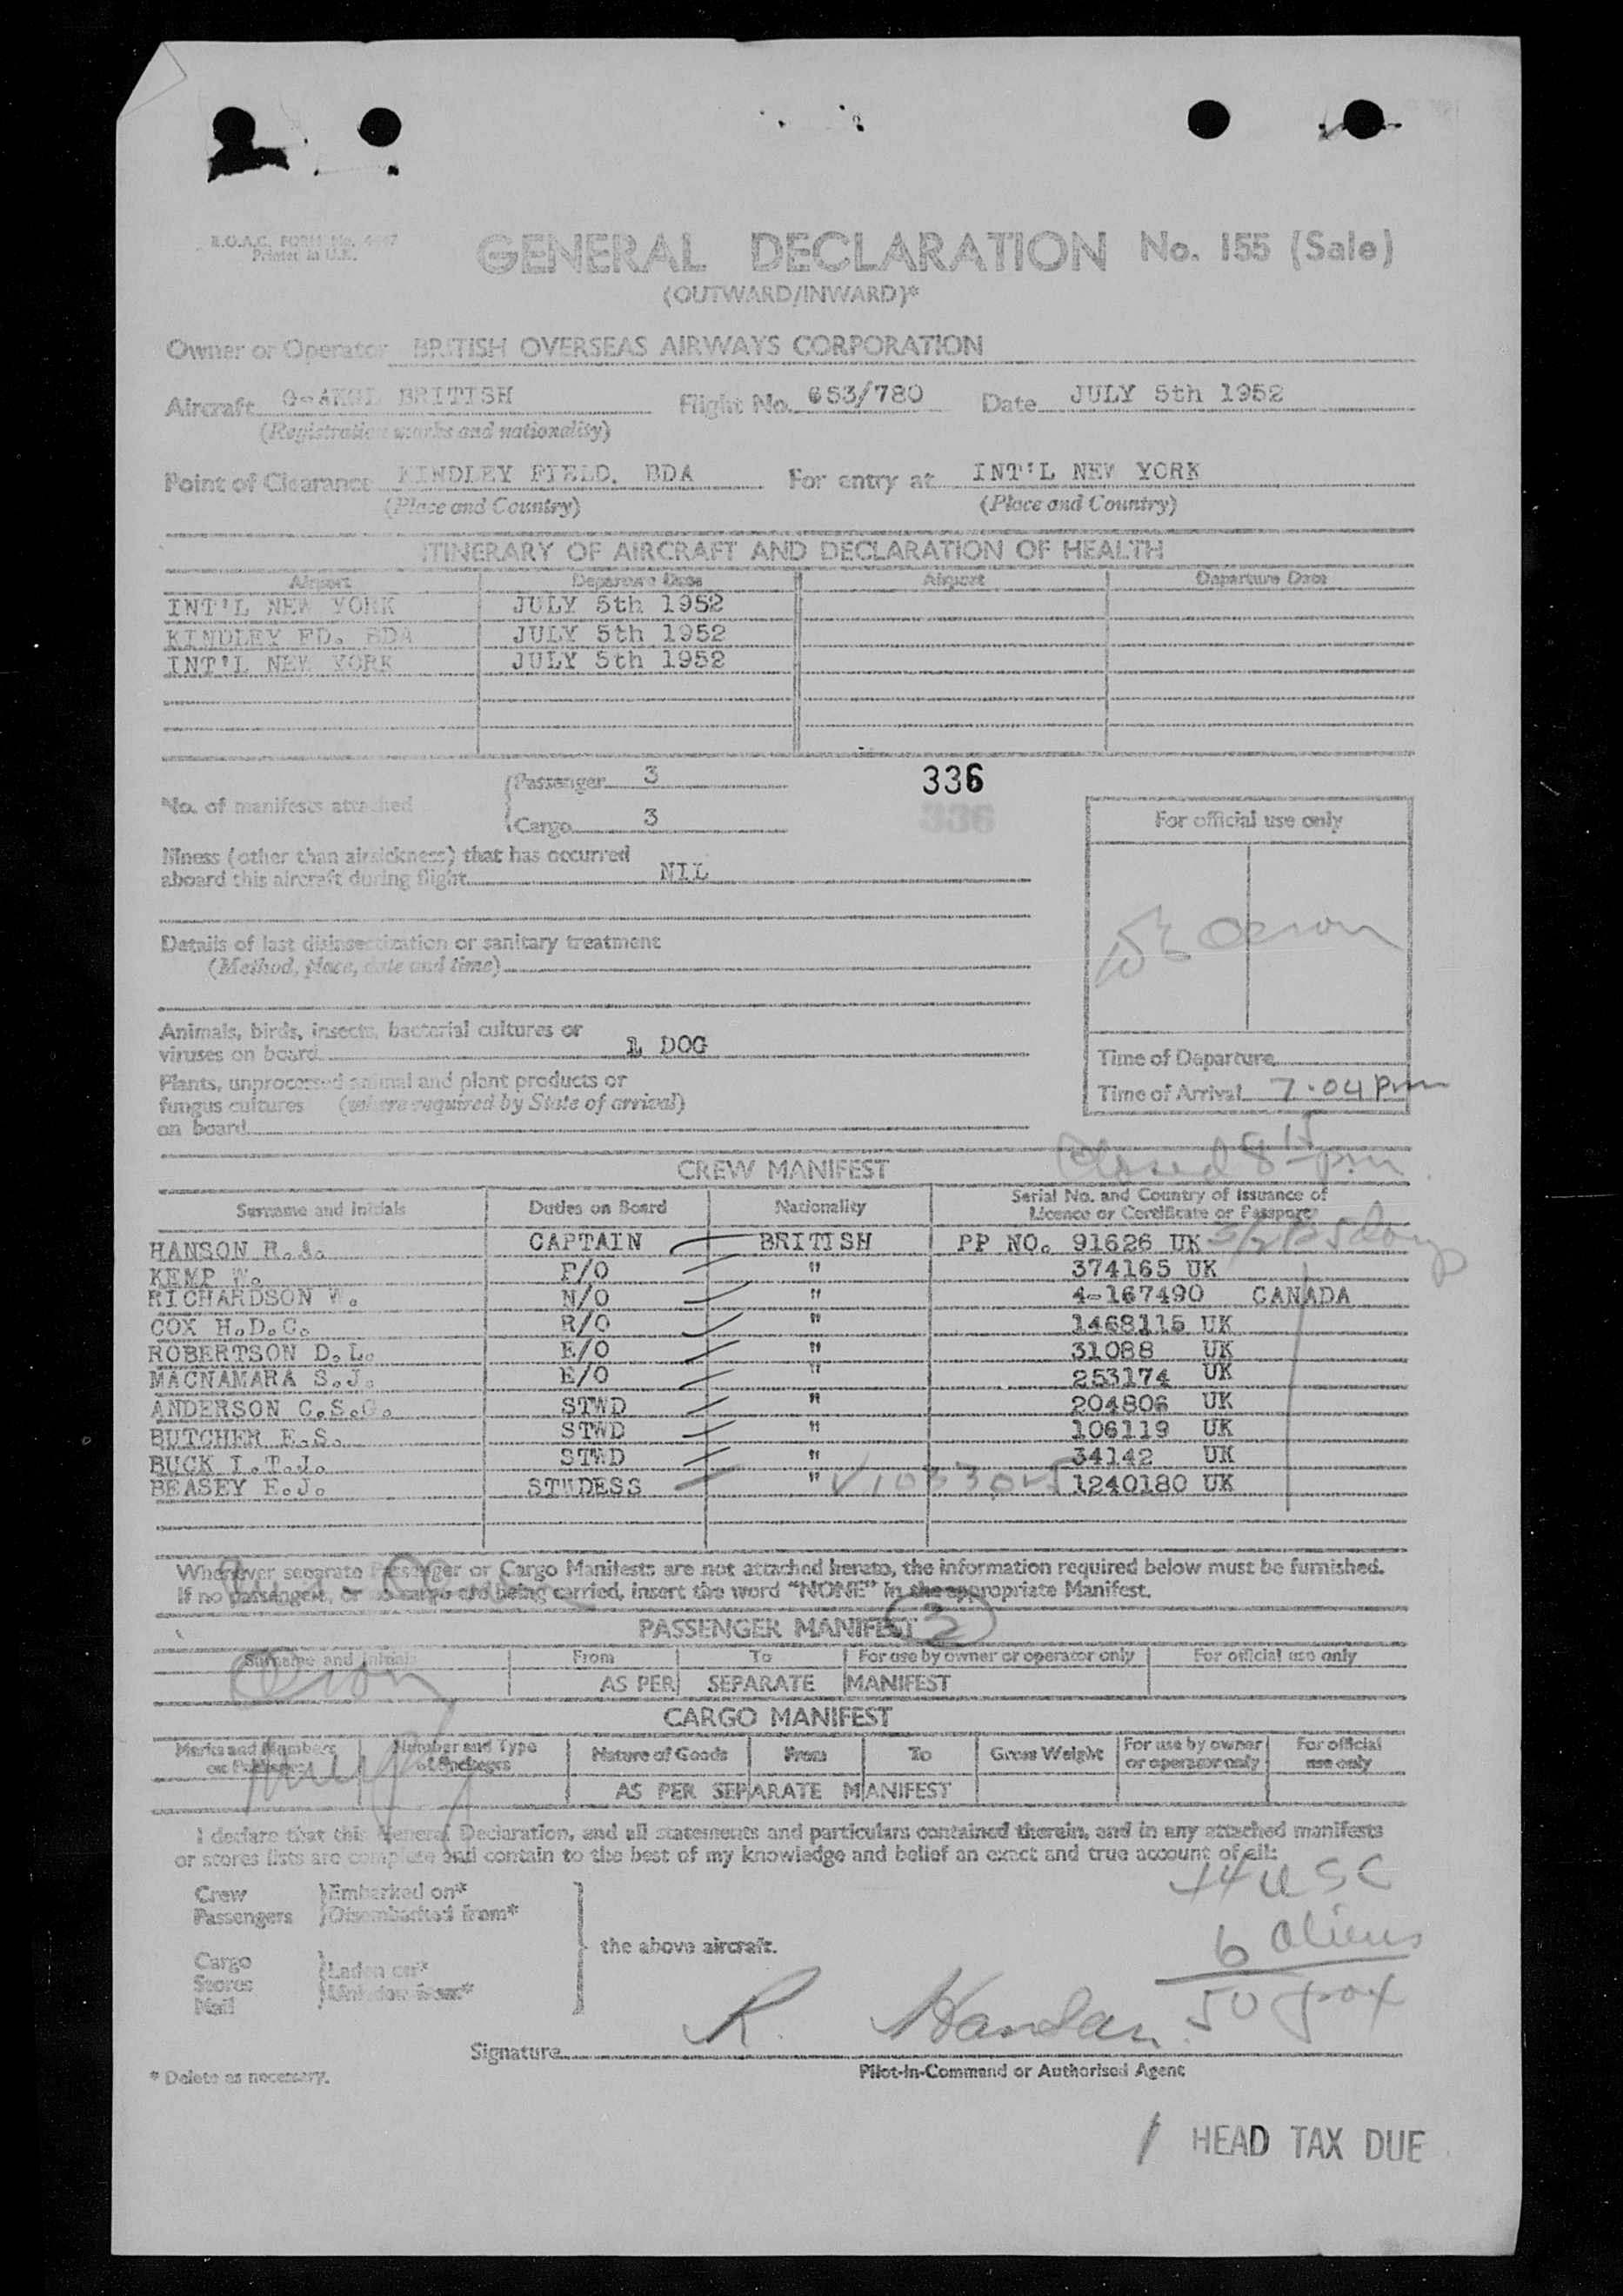 B.O.A.C. FORM No.
Printed in U.K.
GENERAL DECLARATION No. 155 (Sale)
(OUTWARD/INWARD)*
Owner or Operator BRITISH OVERSEAS AIRWAYS CORPORATION
Aircraft BRITISH Flight No. 653/780 Date JULY 5th 1952
(Registration marks and nationality)
Point of Clearance KINDLEY FIELD. BDA For entry at INT'L NEW YORK
(Place and Country) (Place and Country)
ITINERARY OF AIRCRAFT AND DECLARATION OF HEALTH
Airport Departure Date Airport Departure Date
INT'L NEW YORK JULY 5th 1952
KINDLEY FD. BDA JULY 5th 1952
INT'L NEW YORK JULY 5th 1952
No. of manifests attached
Passenger 3
Cargo 3
336
336
For official use only
Illness (other than airsickness) that has occurred
aboard this aircraft during flight NIL
Details of last disinsectization or sanitary treatment
(Method, place, date and time)
Animals, birds, insects, bacterial cultures or
viruses on board 1 DOG
Plants, unprocessed animal and plant products or
fungus cultures (where required by State of arrival)
on board
Time of Departure
Time of Arrival 7.04 pm
Closed 8 15 pm
CREW MANIFEST
Surname and Initials Duties on Board Nationality Serial No. and Country of Issuance of
Licence or Certificate or Passport
HANSON R.A. CAPTAIN BRITISH PP NO. 91626 UK
KEMP W. F/O " 374165 UK
RICHARDSON W. N/O " 4-167490 CANADA
COX H.D.C. R/O " 1468115 UK
ROBERTSON D.L. E/O " 31088 UK
MACNAMARA S.J. E/O " 253174 UK
ANDERSON C.S.G. STWD " 204806 UK
BUTCHER E.S. STWD " 106119 UK
BUCK I.T.J. STWD " 34142 UK
BEASEY E.J. STWDESS " 1240180 UK
Whenever separate Passenger or Cargo Manifests are not attached hereto, the information required below must be furnished.
If no passengers, or no cargo are being carried, insert the word "NONE" in the appropriate Manifest.
PASSENGER MANIFEST
3
Surname and Initials From To For use by owner or operator only For official use only
AS PER SEPARATE MANIFEST
CARGO MANIFEST
Marks and Numbers on Packages Number and Type of Packages Nature of Goods From To Gross Weight For use by owner or operator only For official use only
AS PER SEPARATE MANIFEST
I declare that this General Declaration, and all statements and particulars contained therein, and in any attached manifests
or stores lists are complete and contain to the best of my knowledge and belief an exact and true account of all:
Crew Embarked on*
Passengers Disembarked from*
the above aircraft.
Cargo
Stores Laden on*
Mail Unladen from*
44 USC
6 aliens
50 pax
Signature R. Hanson
Pilot-in-Command or Authorised Agent
* Delete as necessary.
1 HEAD TAX DUE